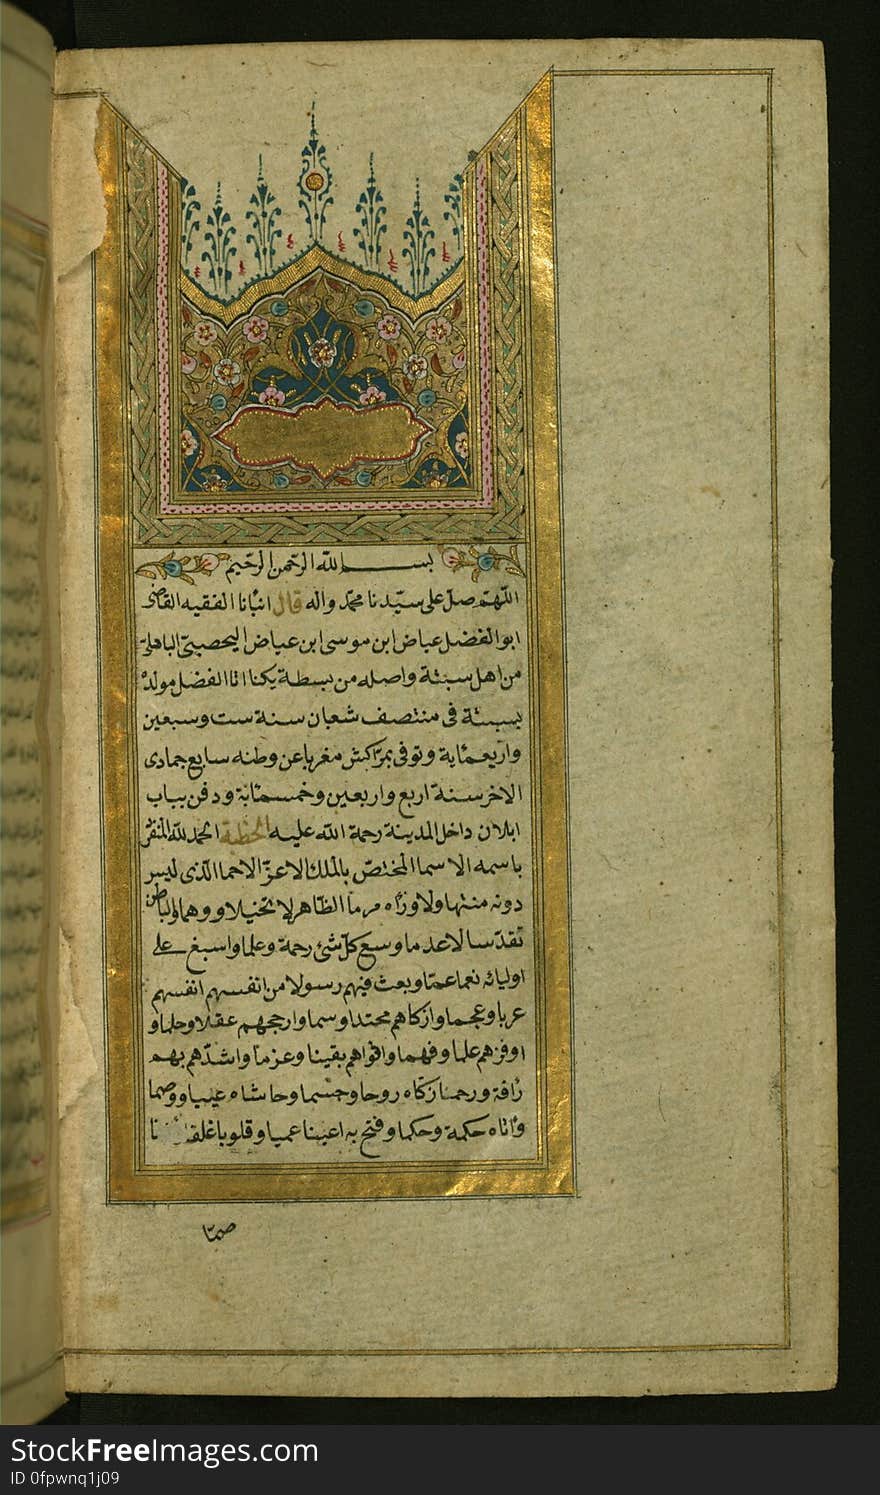 بسم الله الرحمن الرحيم
اللهم صل على سيدنا محمد واله قال انبانا الفقيه القاضى
ابو الفضل عياض ابن موسى ابن عياض اليحصبى
من اهل سبتة واصله من بسطة يكنا ابا الفضل مولده
بسبتة فى منتصف شعبان سنة ست وسبعين
واربعماية وتوفى بمراكش مغربا عن وطنه سابع جمادى
الاخر سنة اربع واربعين وخمسمائة ودفن بباب
ايلان داخل المدينة رحمة الله عليه الخطبة الحمد لله المنفرد
باسمه الاسما المختص بالملك الاعز الاحما الذى ليس
دونه منتها ولا وراه مرما الظاهر لا تخيلا ووهما والباطن
تقدسا لا عدما وسع كل شئ رحمة وعلما واسبغ على
اوليائه نعما عما وبعث فيهم رسولا من انفسهم انفسهم
عربا وعجما وازكاهم محتدا وسما وارجحهم عقلا وحلما و
اوفرهم علما وفهما واقواهم يقينا وعزما واشدهم بهم
رافة ورحما زكاه روحا وجسما وحاشاه عيبا ووصما
واتاه حكمة وحكما وفتح به اعينا عميا وقلوبا غلفا
صما
StockFreeImages.com
ID 0fpwnq1j09